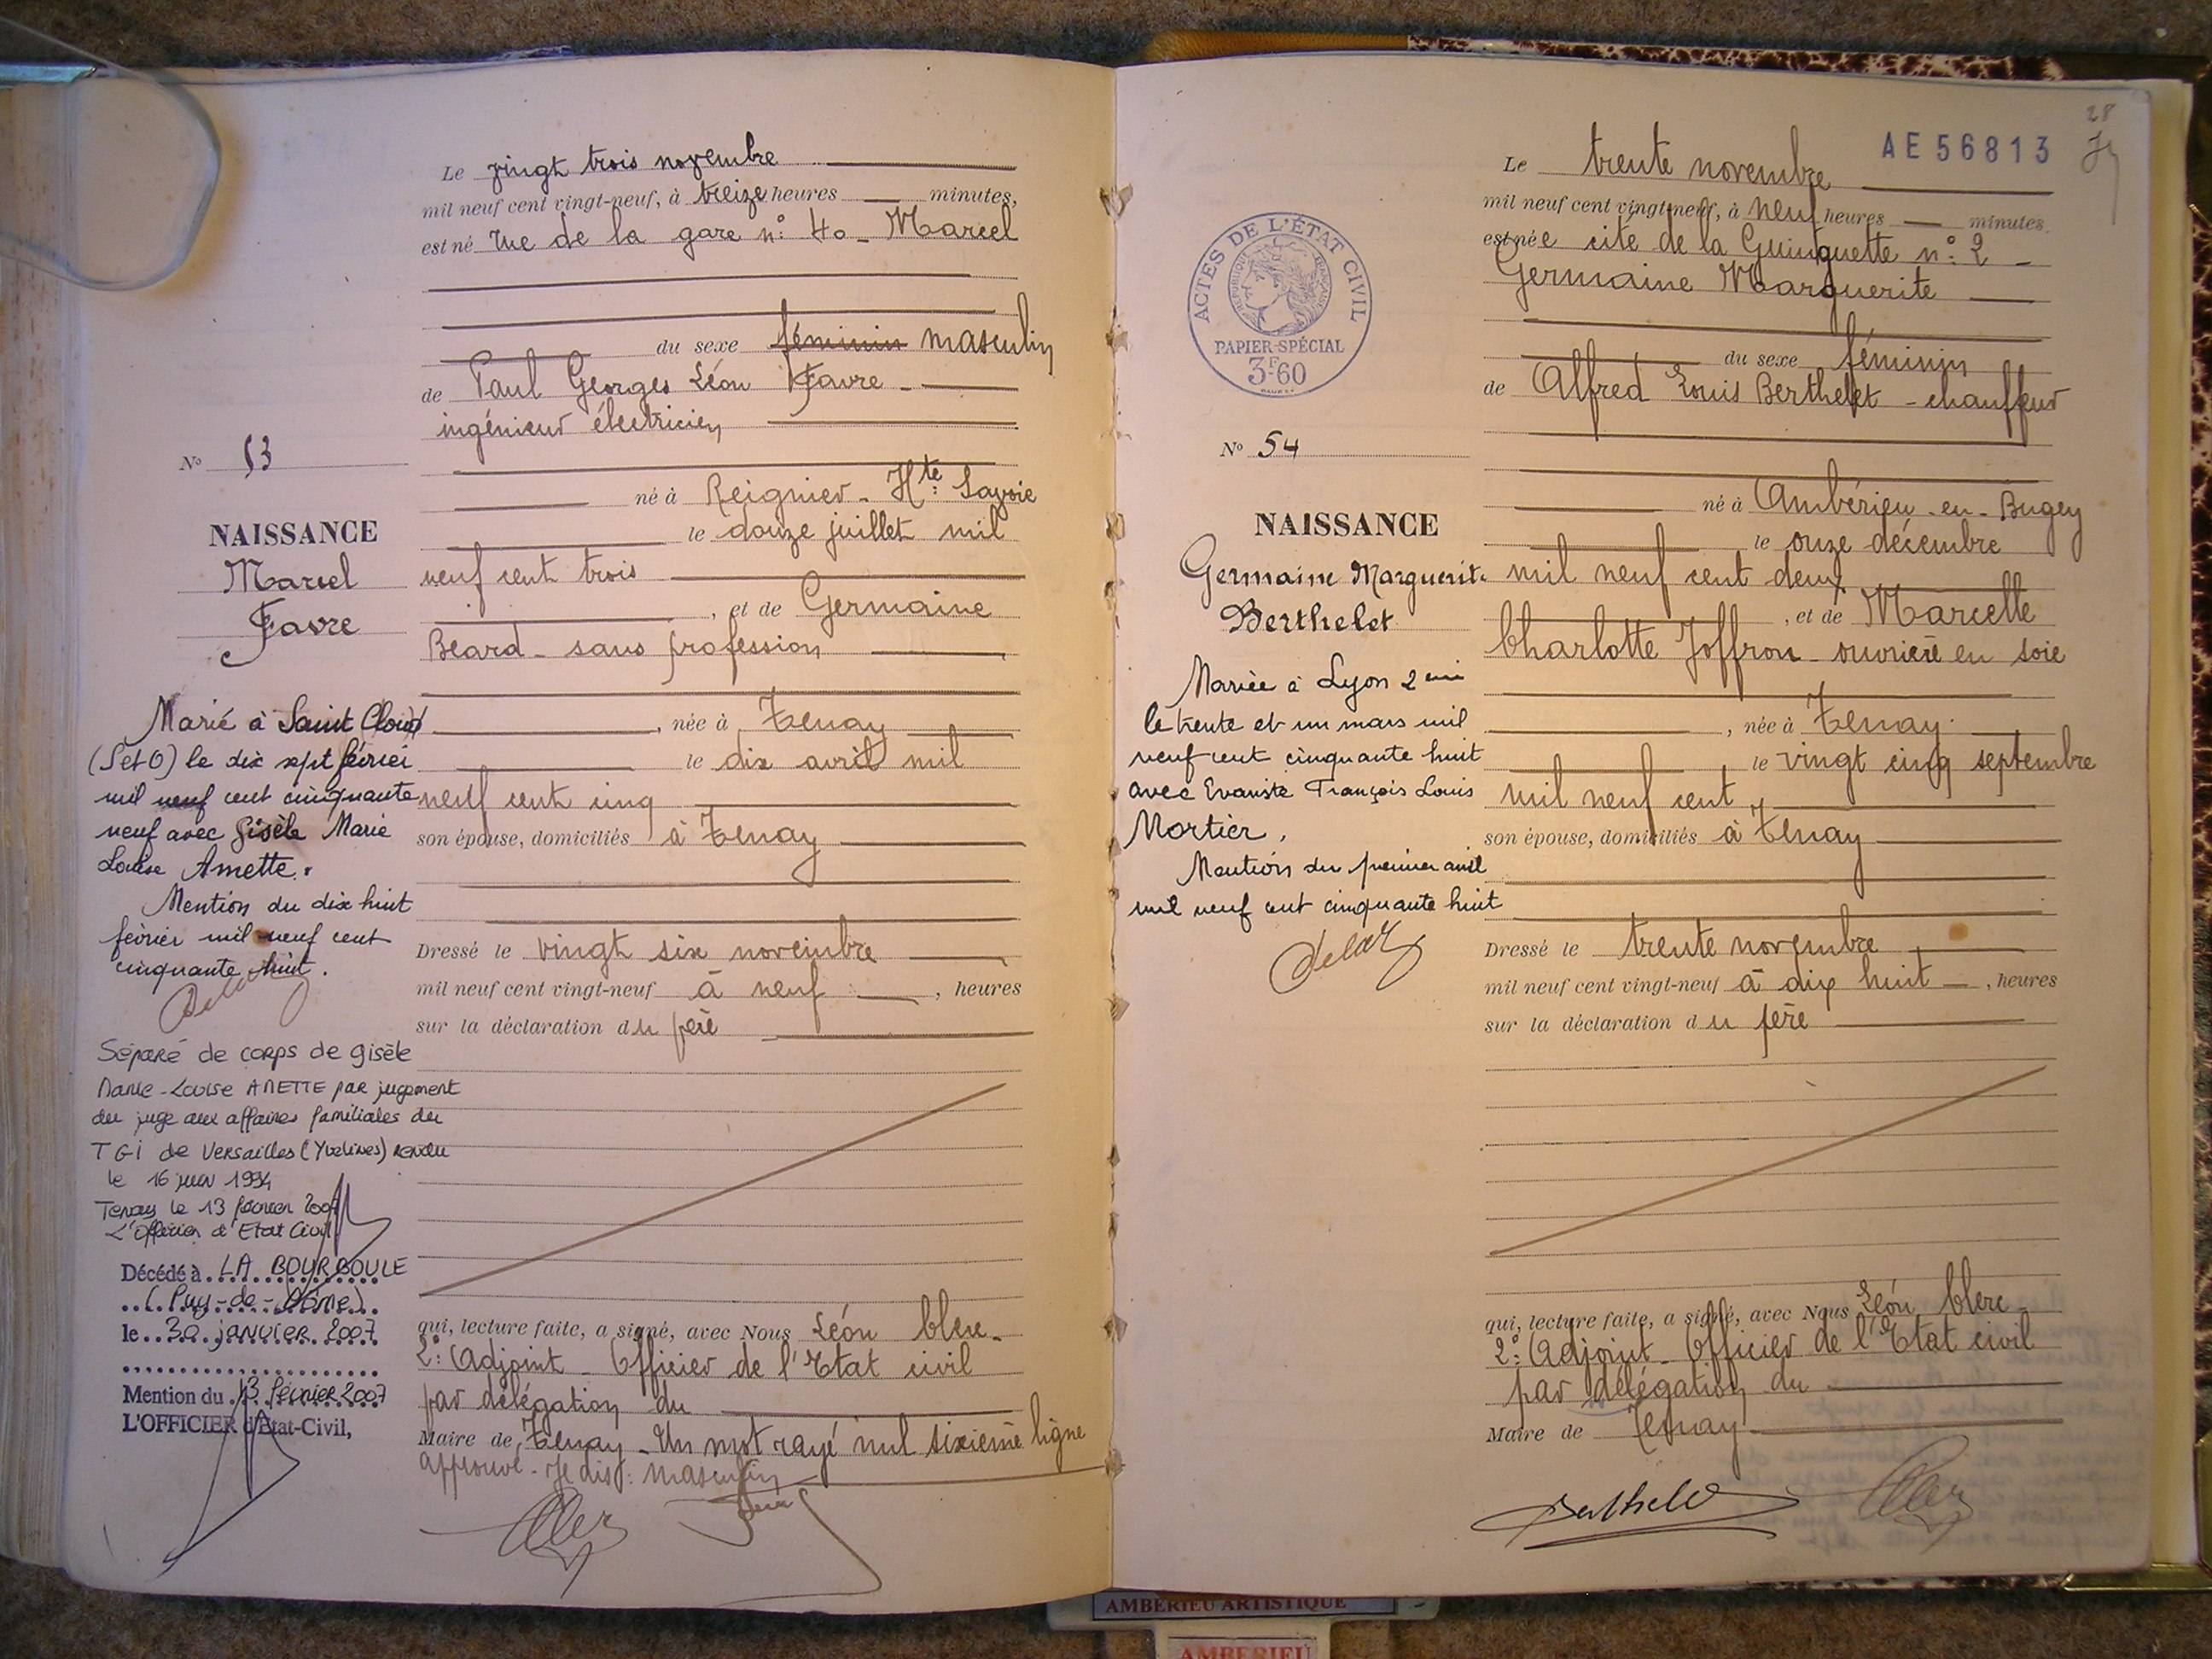 Le vingt trois novembre
mil neuf cent vingt-neuf, à treize heures minutes,
est né rue de la gare n° 40 - Marcel
du sexe féminin masculin
de Paul Georges Léon Favre -
ingénieur électricien
né à Reignier - Hte Savoie
le douze juillet mil
neuf cent trois
, et de Germaine
Béard - sans profession
, née à Tenay
le dix avril mil
neuf cent cinq
son épouse, domiciliés à Tenay
Dressé le vingt six novembre
mil neuf cent vingt-neuf à neuf , heures
sur la déclaration du père
qui, lecture faite, a signé, avec Nous Léon Clerc -
2° Adjoint - Officier de l'Etat civil
par délégation du
Maire de Tenay - Un mot rayé nul sixième ligne
approuvé - Je dis : masculin
N° 53
NAISSANCE
Marcel
Favre
Marié à Saint Cloud
(S et O) le dix sept février
mil neuf cent cinquante
neuf avec Gisèle Marie
Louise Amette.
Mention du dix huit
février mil neuf cent
cinquante huit.
Séparé de corps de Gisèle
Marie-Louise AMETTE par jugement
du juge aux affaires familiales du
TGI de Versailles (Yvelines) rendu
le 16 1994
Tenay le 13 février 2007
L'Officier d'Etat Civil
Décédé à LA BOURBOULE
(Puy-de-Dôme)
le 30 janvier 2007
Mention du 13 février 2007
L'OFFICIER d'Etat-Civil,
28
AE 56813
Le trente novembre
mil neuf cent vingt-neuf, à neuf heures minutes
est née cité de la Guinguette n° 2 -
Germaine Marguerite
du sexe féminin
de Alfred Louis Berthelet - chauffeur
né à Ambérieu-en-Bugey
le onze décembre
mil neuf cent deux
, et de Marcelle
Charlotte Joffron - ouvrière en soie
, née à Tenay
le vingt cinq septembre
mil neuf cent
son épouse, domiciliés à Tenay
Dressé le trente novembre
mil neuf cent vingt-neuf à dix huit , heures
sur la déclaration du père
qui, lecture faite, a signé, avec Nous Léon Clerc -
2° Adjoint - Officier de l'Etat civil
par délégation du
Maire de Tenay
Berthelet
ACTES DE L'ÉTAT CIVIL
RÉPUBLIQUE FRANÇAISE
PAPIER SPÉCIAL
3F60
N° 54
NAISSANCE
Germaine Marguerite
Berthelet
Mariée à Lyon 2eme
le trente et un mars mil
neuf cent cinquante huit
avec Evariste François Louis
Mortier.
Mention du premier avril
mil neuf cent cinquante huit
AMBÉRIEU ARTISTIQUE
AMBERIEU